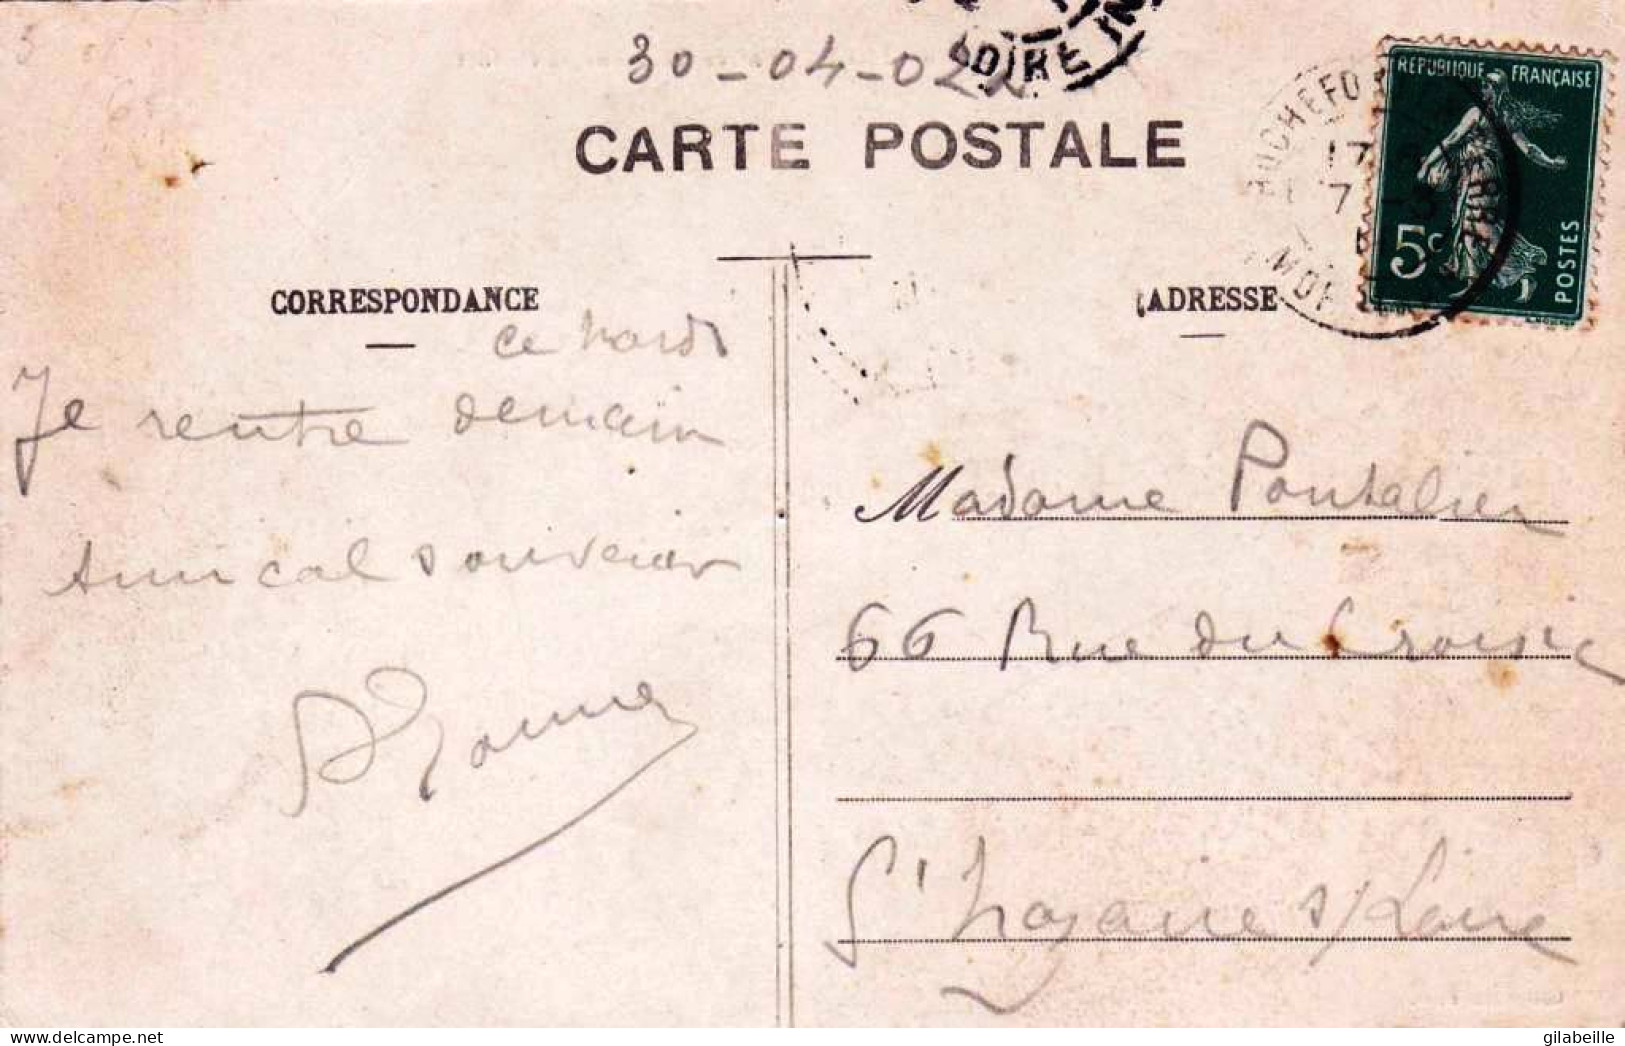 30-04-02
CARTE POSTALE
RÉPUBLIQUE FRANÇAISE
5c
POSTES
CORRESPONDANCE
ADRESSE
ce mardi
Je rentre demain
Amical souvenir
Madame Pontalier
66 Rue du Croisic
St Nazaire s/Loire
gilabeille